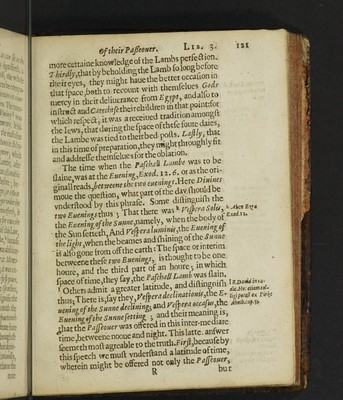 Of their Passeouer. LIB. 3. 121
more certaine knowledge of the Lambs perfectiō.
Thirdly, that by beholding the Lamb so long before
their eyes, they might haue the better occasion in
that space, both to recount with themselues Gods
mercy in their deliuerance from Egypt, and also to
instruct and Catechise their children in that point: for
which respect, it was a receiued tradition amongst
the Iews, that during the space of these foure daies,
the Lambe was tied to their bed-posts. Lastly, that
in this time of preparation, they might throughly fit
and addresse themselues for the oblation.
The time when the Paschall Lambe was to be
slaine, was at the Euening, Exod. 12. 6. or as the ori-
ginall reads, betweene the two euenings. Here Diuines
moue the question, what part of the day should be
vnderstood by this phrase. Some distinguish the
two Euenings thus; That there was k Vespera Solis,
the Euening of the Sunne, namely, when the body of
the Sun setteth, And Vespera luminis, the Euening of
the light, when the beames and shining of the Sunne
is also gone from off the earth: The space or interim
betweene these two Euenings, is thought to be one
houre, and the third part of an houre; in which
space of time, they say, the Paschall Lamb was slain.
l Others admit a greater latitude, and distinguish
thus; There is, say they, Vespera declinationis, the E-
uening of the Sunne declining; and Vespera occasus, the
Euening of the Sunne setting; and their meaning is,
that the Passeouer was offered in this inter-mediate
time, betweene noone and night. This latte. answer
seemeth most agreable to the truth. First, because by
this speech we must vnderstand a latitude of time,
wherein might be offered not only the Passeouer,
R but
k Aben Ezra
Exod. 12.